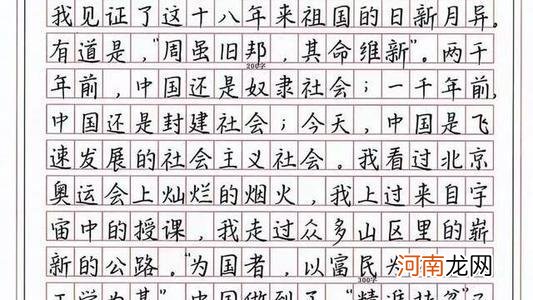 我见证了这十八年来祖国的日新月异。
有道是，“周虽旧邦，其命维新”。两千
200字
年前，中国还是奴隶社会；一千年前，
中国还是封建社会；今天，中国是飞
速发展的社会主义社会。我看过北京
奥运会上灿烂的烟火，我上过来自宇
宙中的授课，我走过众多山区里的崭
新的公路。“为国者，以富民为
300字
河南龙网